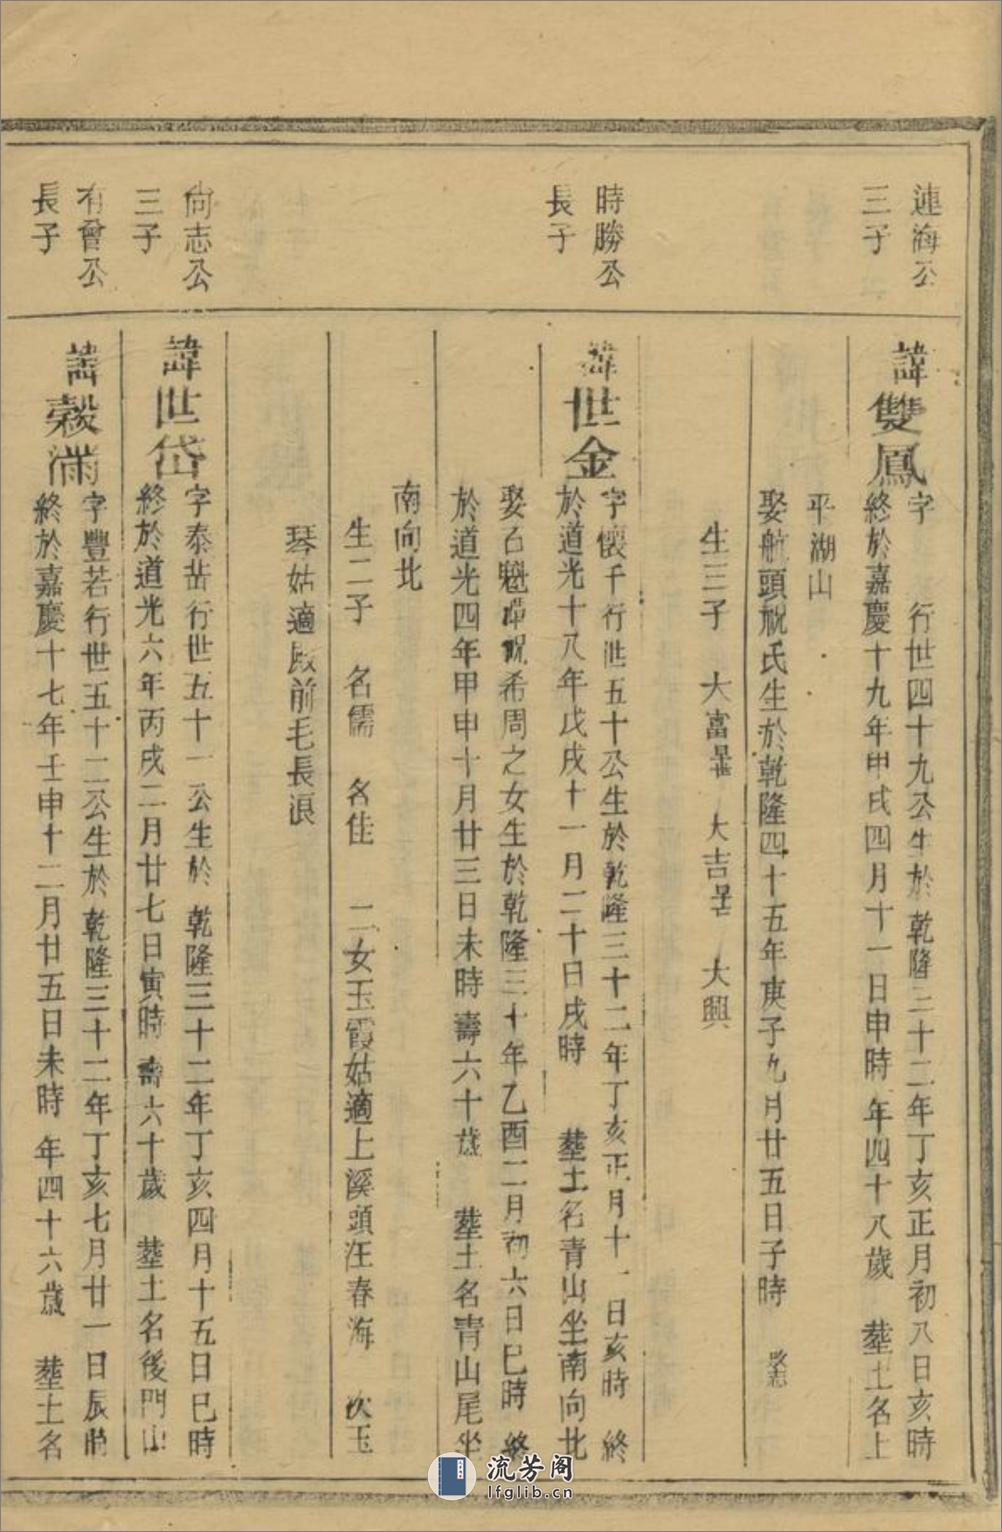 連海公
三子
諱雙鳳
字 行世四十九公生於乾隆三十二年丁亥正月初八日亥時
終於嘉慶十九年甲戌四月十一日申時 年四十八歲 塟土名上
平湖山
娶航頭祝氏生於乾隆四十五年庚子九月廿五日子時 改志
生三子 大富 大吉 大興
時勝公
長子
諱世金
字懷千行世五十公生於乾隆三十二年丁亥正月十一日亥時 終
於道光十八年戊戌十一月二十日戌時 塟土名青山坐南向北
娶石魁 祝希周之女生於乾隆三十年乙酉二月初六日巳時 終
於道光四年甲申十月廿三日未時 壽六十歲 塟土名青山尾坐
南向北
生二子 名儒 名佳 二女玉霞姑適上溪頭汪春海 次玉
琴姑適殿前毛長浪
尙志公
三子
諱世岱
字泰岳行世五十一公生於乾隆三十二年丁亥四月十五日巳時
終於道光六年丙戌二月廿七日寅時 壽六十歲 塟土名後門山
有曾公
長子
諱穀滿
字豐若行世五十二公生於乾隆三十二年丁亥七月廿一日辰時
終於嘉慶十七年壬申十二月廿五日未時 年四十六歲 塟土名
流芳阁
lfglib.cn